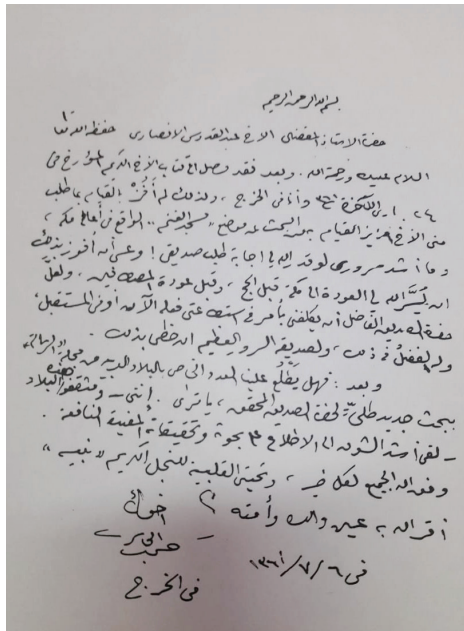 بسم الله الرحمن الرحيم
حضرة الاستاذ المفضال الاخ عبدالقدوس الانصارى حفظه الله تعا
السلام عليك ورحمة الله. وبعد فقد وصل الي كتاب الأخ الكريم المؤرخ في
وأنا في الخرج ، ولذلك لم أفز بالقيام بما طلب
مني الأخ العزيز القيام به من البحث عن موضع "مسجد الغنم" الواقع في أعالي مكة ،
وما أشد سروري لو قدر لي اجابة طلب صديقي! وعسى أن أفوز بذلك
ان يسر الله لي العودة الى مكة قبل الحج ، وقبل عودة المصطافين ، ولعل
حضرة الصديق الفاضل أن يكلفني بأمر في استطاعتي فعله الآن أو في المستقبل،
وله الفضل في ذلك ، ولصديقه السرور العظيم ان حظي بذلك .
وبعد : فهل يطلع علينا العدد الخاص بالبلاد العربية من مجلة
ببحث جديد طلي لحضرة الصديق المحقق ، يا ترى . إنني - ومثقفو البلاد
- لفي أشد الشوق الى الاطلاع على بحوثه وتحقيقاته المفيدة النافعة .
وفق الله الجميع لكل خير ، وتحيتي القلبية للنجل الكريم "نبيه"
أقر الله به عين والده وأمته
أخوك
حمد الجاسر
في ٦/٧/١٣٦١
في الخرج